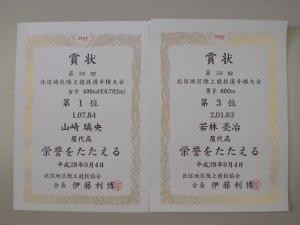 賞状
第58回
北信地区陸上競技選手権大会
女子 400mH(0.762m)
第1位
1.07.84
山崎 璃央
屋代高
栄誉をたたえる
平成28年9月4日
北信地区陸上競技協会
会長 伊藤利博
賞状
第58回
北信地区陸上競技選手権大会
男子 800m
第3位
2.01.63
若林 亮冶
屋代高
栄誉をたたえる
平成28年9月4日
北信地区陸上競技協会
会長 伊藤利博